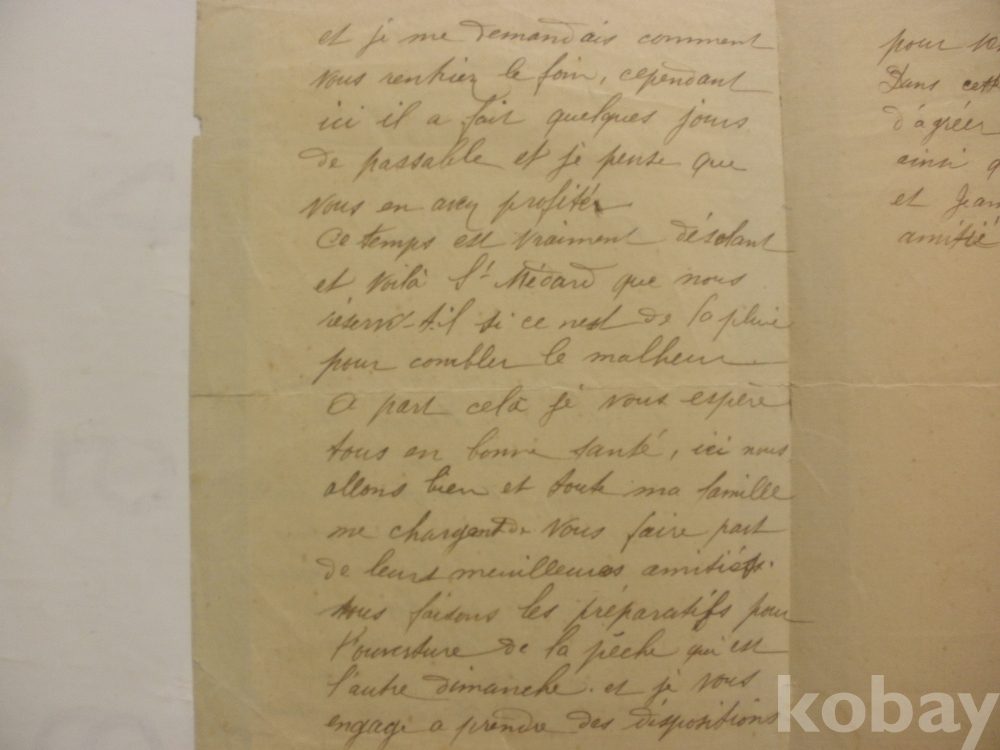 et je me demandais comment
vous rentriez le foin, cependant
ici il a fait quelques jours
de passable et je pense que
vous en avez profité
Ce temps est vraiment désolant
et voilà St Médard que nous
réserve-t-il si ce nest de la pluie
pour combler le malheur
A part celà je vous espère
tous en bonne santé, ici nous
allons bien et toute ma famille
me chargent de vous faire part
de leurs meuilleures amitiés.
nous faisons les préparatifs pour
l'ouverture de la pêche qui est
l'autre dimanche. et je vous
engage a prendre des dispositions
pour
Dans cette
d'agréer
ainsi
et Jean
amitié
kobay